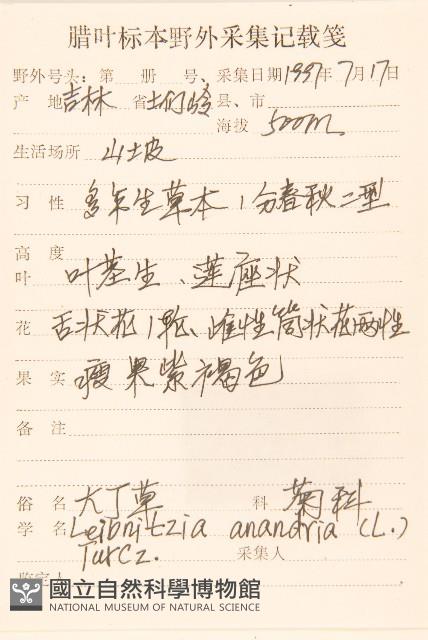 腊叶标本野外采集记载笺
野外号头：第 册 号、采集日期1997年7月17日
产 地吉林 省土们岭县、市
海拔 500m
生活场所 山坡
习 性 多年生草本，分春秋二型
高 度
叶 叶基生、莲座状
花 舌状花1轮、雌性筒状花两性
果 实 瘦果紫褐色
备 注
俗 名 大丁草 科 菊科
学 名 Leibnitzia anandria (L.)
Turcz. 采集人
鉴定人
國立自然科學博物館
NATIONAL MUSEUM OF NATURAL SCIENCE